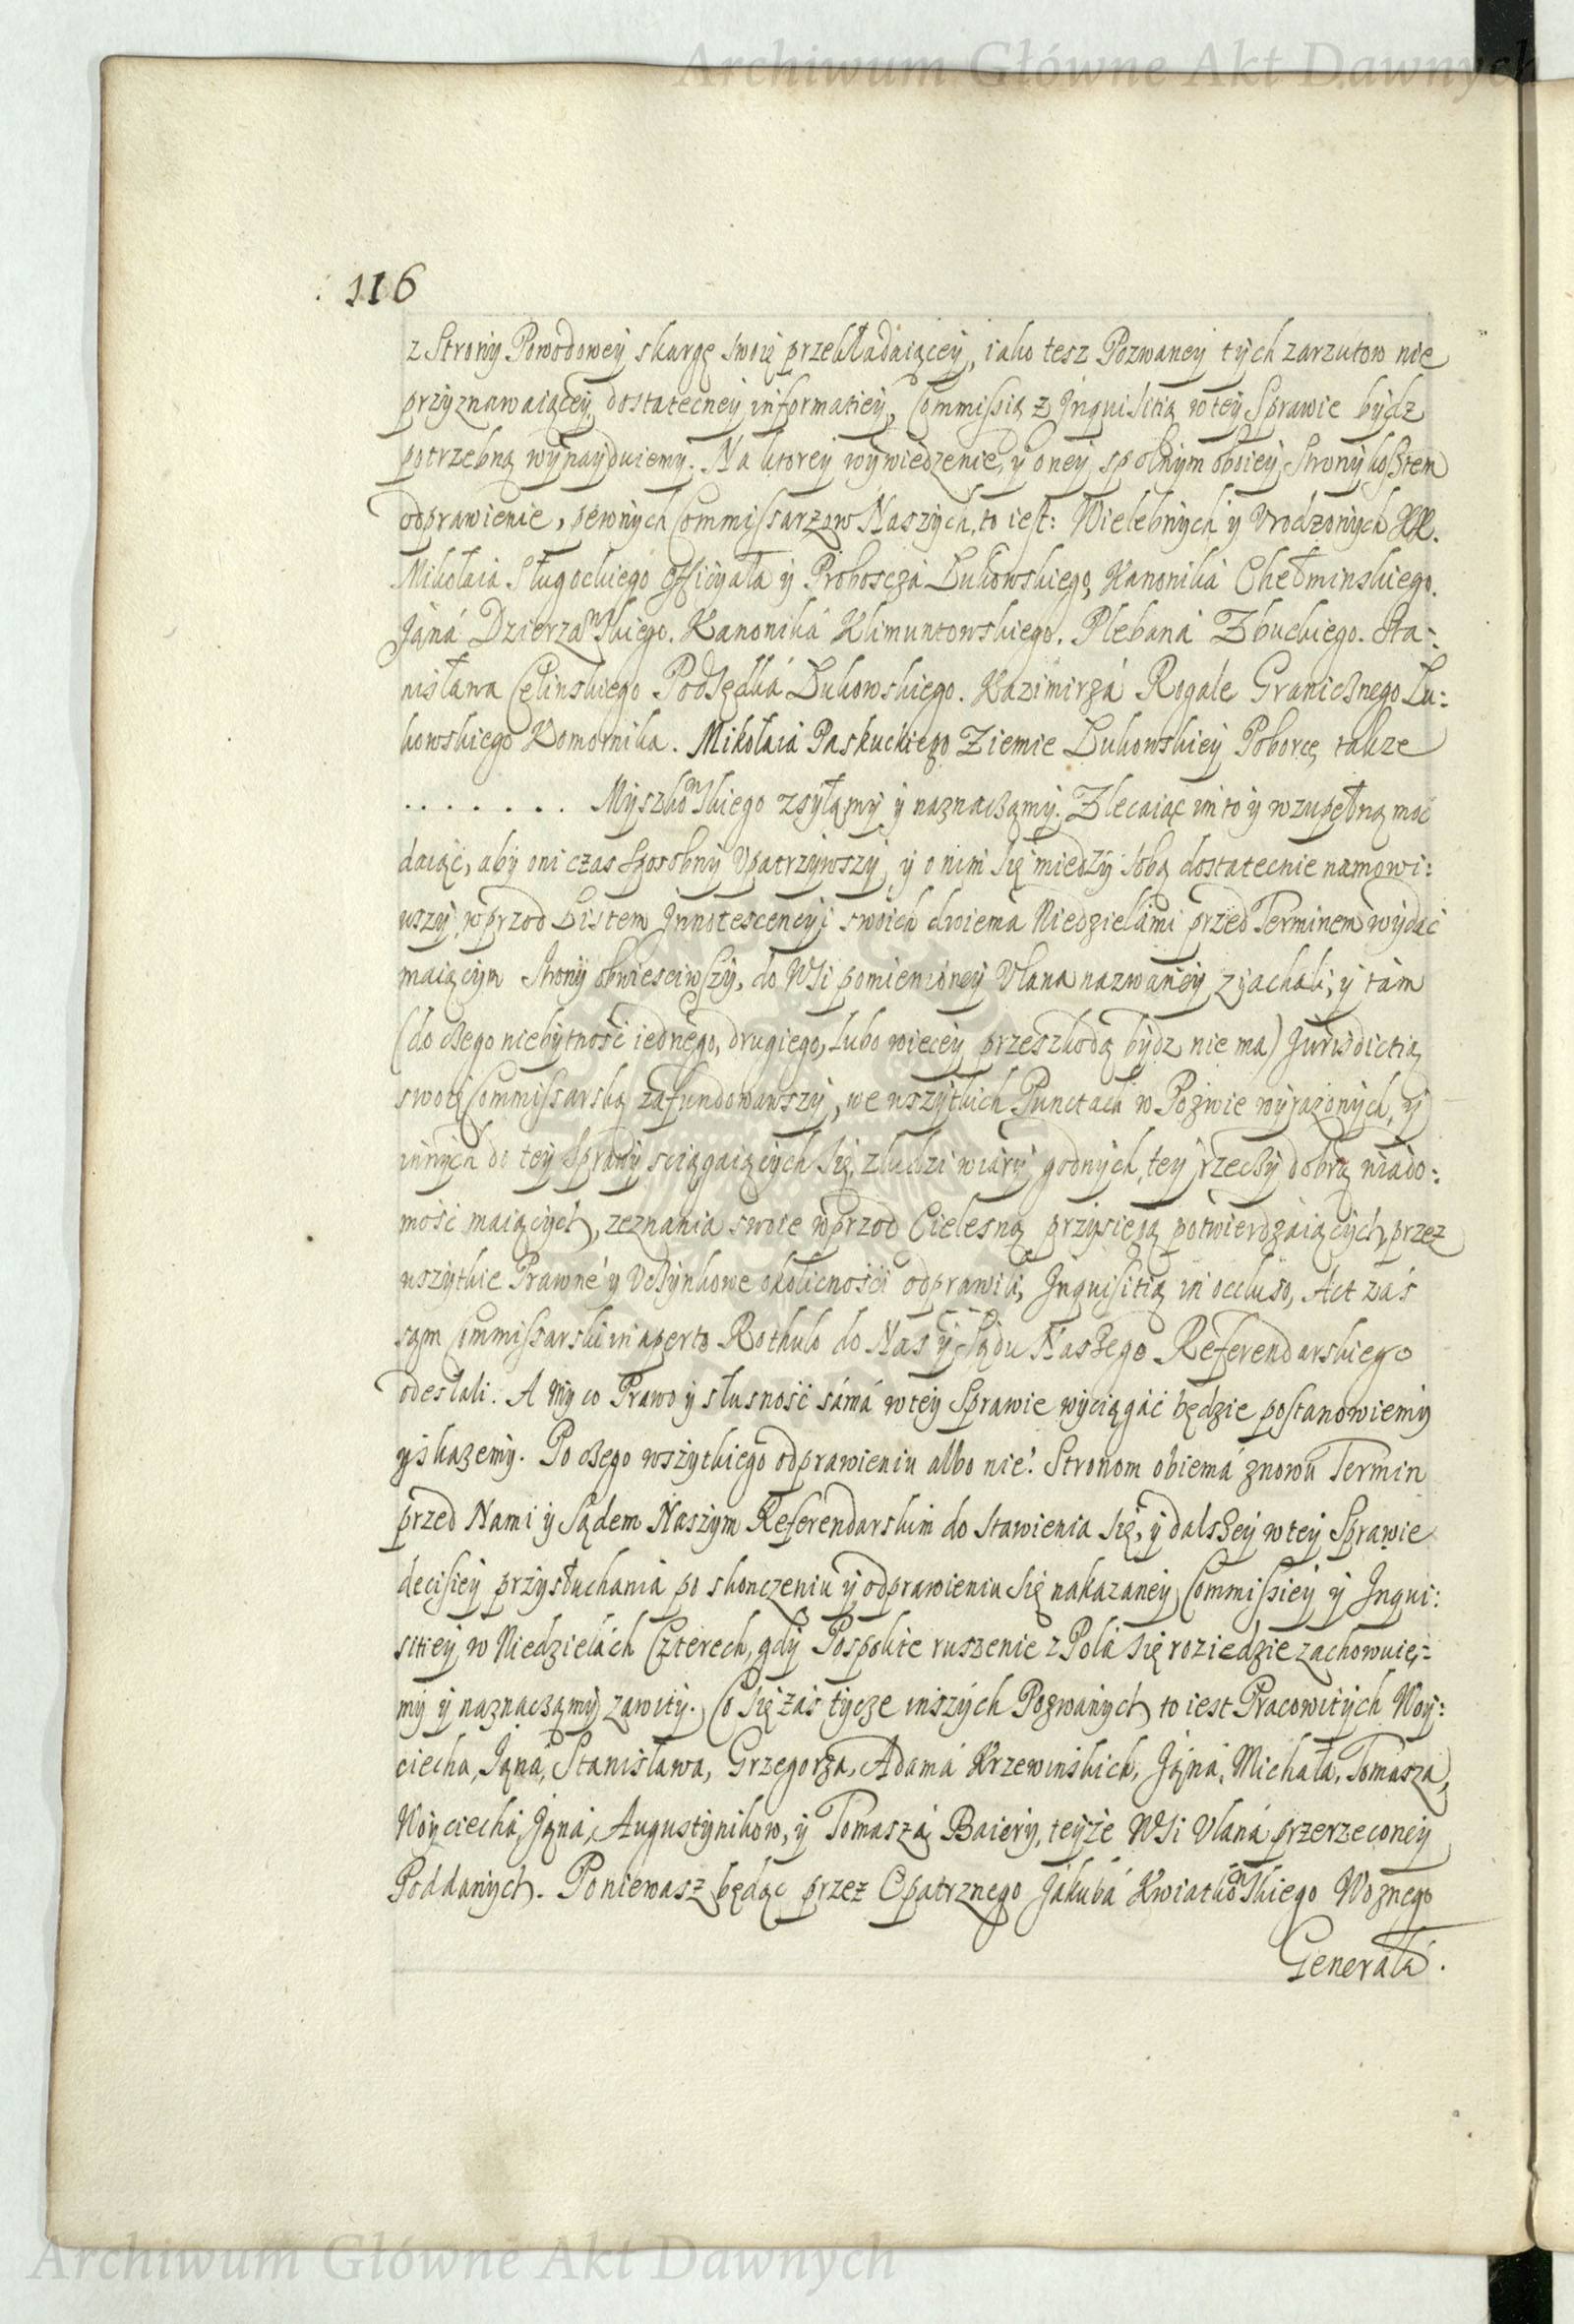 Archiwum Główne Akt Dawnych
116
z Strony Powodowey skargę swoię przekładaiącey, iako tesz Pozwaney tych zarzutow nie
przyznawaiącey, dostatecney informatiey, Commissią z Inquisitią w tey Sprawie bydz
potrzebną wynayduiemy. Na ktorey wywiedzenie, y oney spolnym oboiey Strony kosztem
odprawienie, pewnych Commissarzow Naszych, to iest: Wielebnych y Vrodzonych XX.
Mikołaia Sługockiego Officyała y Proboscza Lukowskiego, Kanonika Chełminskiego.
Jana Dzierzanskiego. Kanonika Klimuntowskiego. Plebana Zbuckiego. Sta:
nisława Celinskiego Podsędka Lukowskiego. Kazimirza Rogale Granicznego Lu:
kowskiego Komornika. Mikołaia Paskuckiego Ziemie Lukowskiey Poborcę, takze
........ Myszkowskiego zsyłamy y naznaczamy. Zlecaiąc im to y w zupełną moc
daiąc, aby oni czas sposobny Vpatrzywszy, y o nim się miedzy sobą dostatecnie namowi:
wszy, wprzod Listem Innotescencyi swoich dwiema Niedzielami przed Terminem wydac
maiącym Strony obwiesciwszy, do Wsi pomienioney Vlana nazwaney zjachali, y tam
(do czego niebytność iednego, drugiego, lubo wiecey przeszkodą bydz nie ma) Jurisdictią
swoię Commissarską zafundowawszy, we wszytkich Punctach w Pozwie wyrazonych, y
innych do tey Sprawy sciągaiących się, z ludzi wiary godnych, tey rzeczy dobrą wiado:
mość maiących, zeznania swoie wprzod Cielesną przysięgą potwierdzaiących, przez
wszytkie Prawne y Vczynkowe okolicności odprawili, Inquisitią in occluso, Act zaś
sam Commissarski in aperto Rothulo do Nas y Sądu Naszego Referendarskiego
odesłali. A My co Prawo y słusność sama w tey Sprawie wyciągać będzie postanowiemy
y skazemy. Po czego wszytkiego odprawieniu albo nie. Stronom obiema znowu Termin
przed Nami y Sądem Naszym Referendarskim do stawienia się, y dalszey w tey Sprawie
decisiey przysłuchania po skonczeniu y odprawieniu się nakazaney Commissiey y Inqui:
sitiey w Niedzielach Czterech, gdy Pospolite ruszenie z Pola się roziedzie zachowuie:
my y naznaczamy zawity. Co się zaś tycze inszych Pozwanych to iest Pracowitych Woy:
ciecha, Jana, Stanisława, Grzegorza, Adama Krzewinskich, Jana, Michała, Tomasza,
Woyciecha, Jana, Augustynikow, y Tomasza Baiery, teyże Wsi Vlana przerzeconey
Poddanych. Poniewasz będąc przez Opatrznego Jakuba Kwiatkowskiego Woznego
Generała.
Archiwum Główne Akt Dawnych